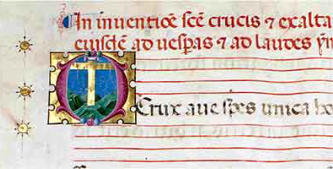 In inventiōe scē crucis ⁊ exalta
eiusdē ad uesꝑas ⁊ ad laudes ym
O Crux aue spes unica ho